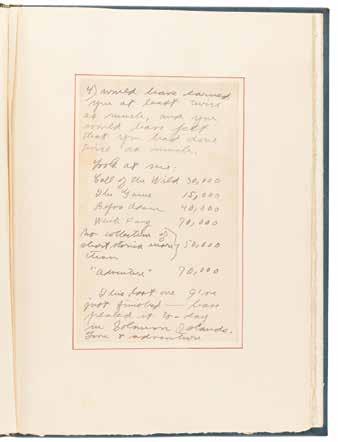 4) would have earned
you at least twice
as much, and you
would have felt
that you had done
twice as much.
Look at me:
Call of the Wild 30,000
The Game 15,000
Before Adam 40,000
White Fang 70,000
No collection of
short stories more
than } 50,000
"Adventure" 70,000
This last one I've
just finished — have
it to-day
in Solomon Islands.
Love & adventure